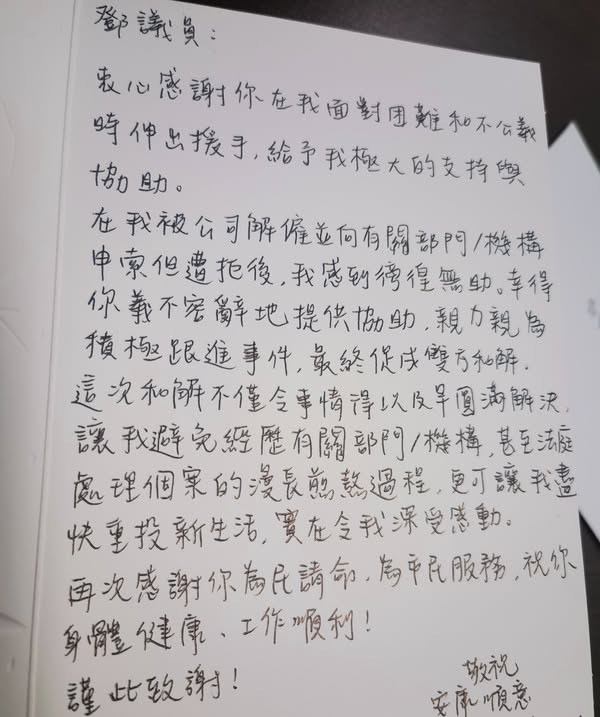 鄧議員：
衷心感謝你在我面對困難和不公義
時伸出援手，給予我極大的支持與
協助。
在我被公司解僱並向有關部門/機構
申索但遭拒後，我感到徬徨無助。幸得
你義不容辭地提供協助，親力親為
積極跟進事件，最終促成雙方和解。
這次和解不僅令事情得以及早圓滿解決，
讓我避免經歷有關部門/機構，甚至法庭
處理個案的漫長煎熬過程，更可讓我盡
快重投新生活，實在令我深受感動。
再次感謝你為民請命，為市民服務，祝你
身體健康、工作順利！
謹此致謝！
敬祝
安康順意